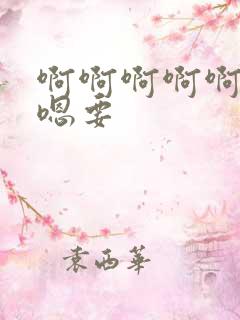 啊啊啊啊啊
嗯要
袁西华